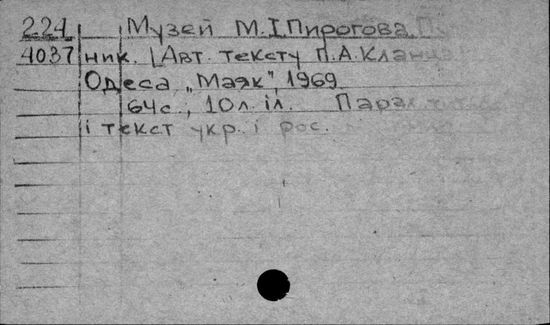 224 Музей М.І.Пирогова.
4037 ник. | Авт. тексту П.А.
Одеса „Маяк", 1969
64с., 10л.іл. Парал.
і текст укр. і рос.